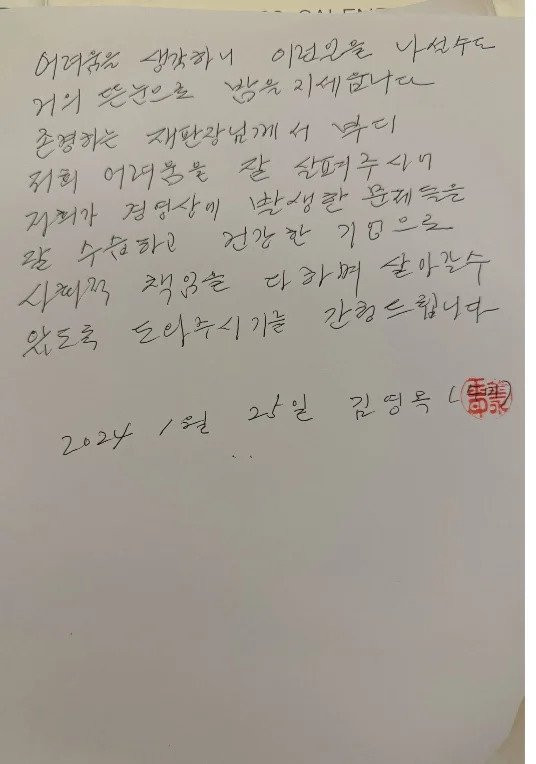 CALEND
어려움을 생각하니
거의 뜬눈으로 밤을 지세웁니다
존경하는 재판장님께서 부디
저희 어려움을 잘 살펴주시어
저희가 경영상에 발생한 문제들을
잘 수습하고 건강한 기업으로
사회적 책임을 다하며 살아갈수
있도록 도와주시기를 간청드립니다
2024 1월 25일 김영목